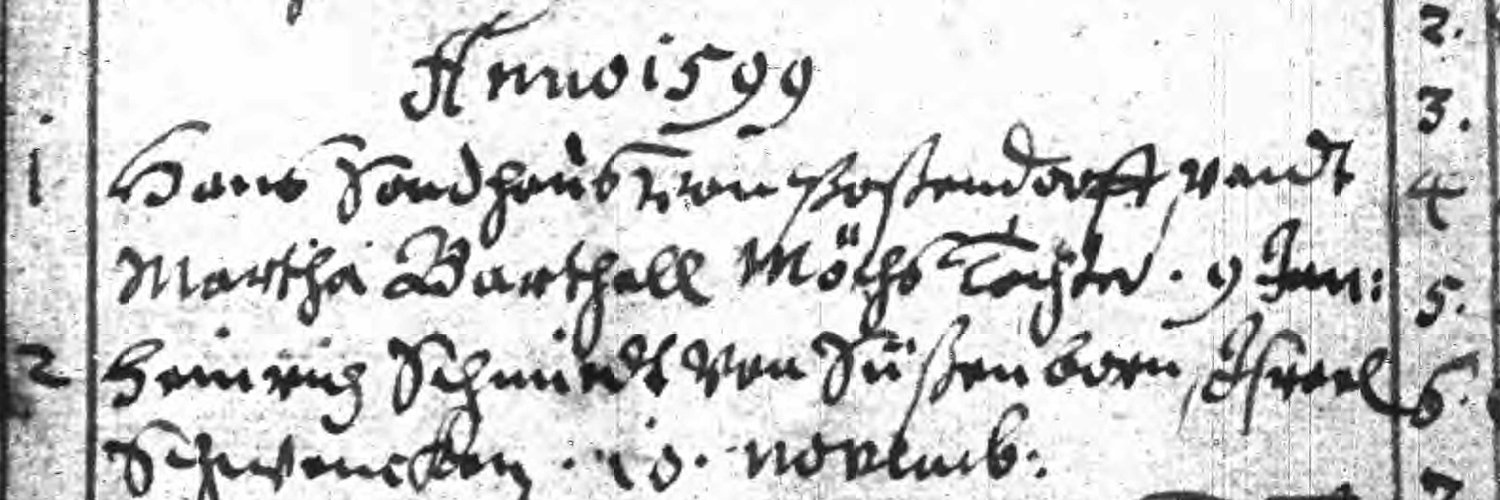 2.
Anno 1599
3.
1 Hans Sondhaus von Possendorff, vundt
4
Martha Barthell Möchs Tochter. 9 Jan:
5.
2 Heinrich Schmiedt von Süßenborn, Israel
6.
Schwencken. 10. novemb:
7